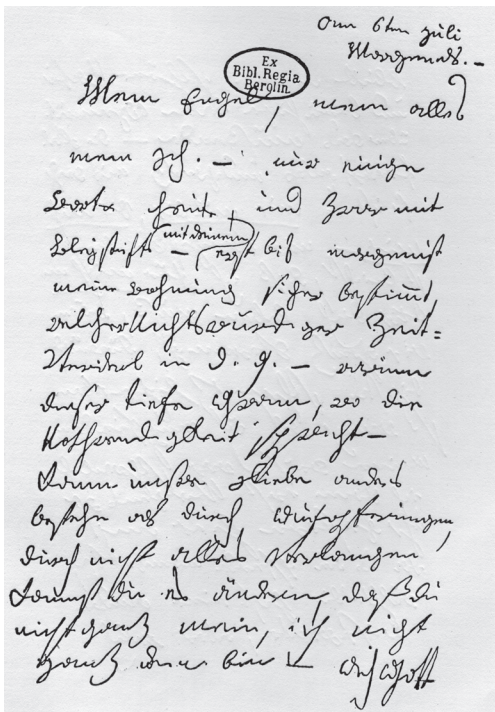 am 6ten Juli
Morgends. –
Ex
Bibl. Regia
Berolin.
Mein Engel, mein alles
mein Ich. – nur einige
Worte heute, und zwar mit
Bleystift – (mit deinem)
erst bis morgen ist
meine Wohnung sicher bestimmt,
welcher Nichtswürdiger Zeit=
Verderb in d. g. – warum
dieser tiefe Gram, wo die
Nothwendigkeit spricht –
Kann unsre Liebe anders
bestehn als durch Aufopferungen,
durch nicht alles verlangen,
kannst du es ändern, daß du
nicht ganz mein, ich nicht
ganz dein bin – Ach Gott